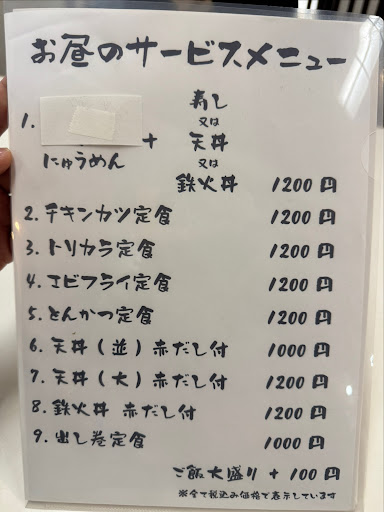 お昼のサービスメニュー
寿し
1.
又は
+ 天丼
にゅうめん
又は
鉄火丼 1200円
2. チキンカツ定食 1200円
3. トリカラ定食 1200円
4. エビフライ定食 1200円
5. とんかつ定食 1200円
6. 天丼(並)赤だし付 1000円
7. 天丼(大)赤だし付 1200円
8. 鉄火丼 赤だし付 1200円
9. 出し巻定食 1000円
ご飯大盛り + 100円
※全て税込み価格で表示しています